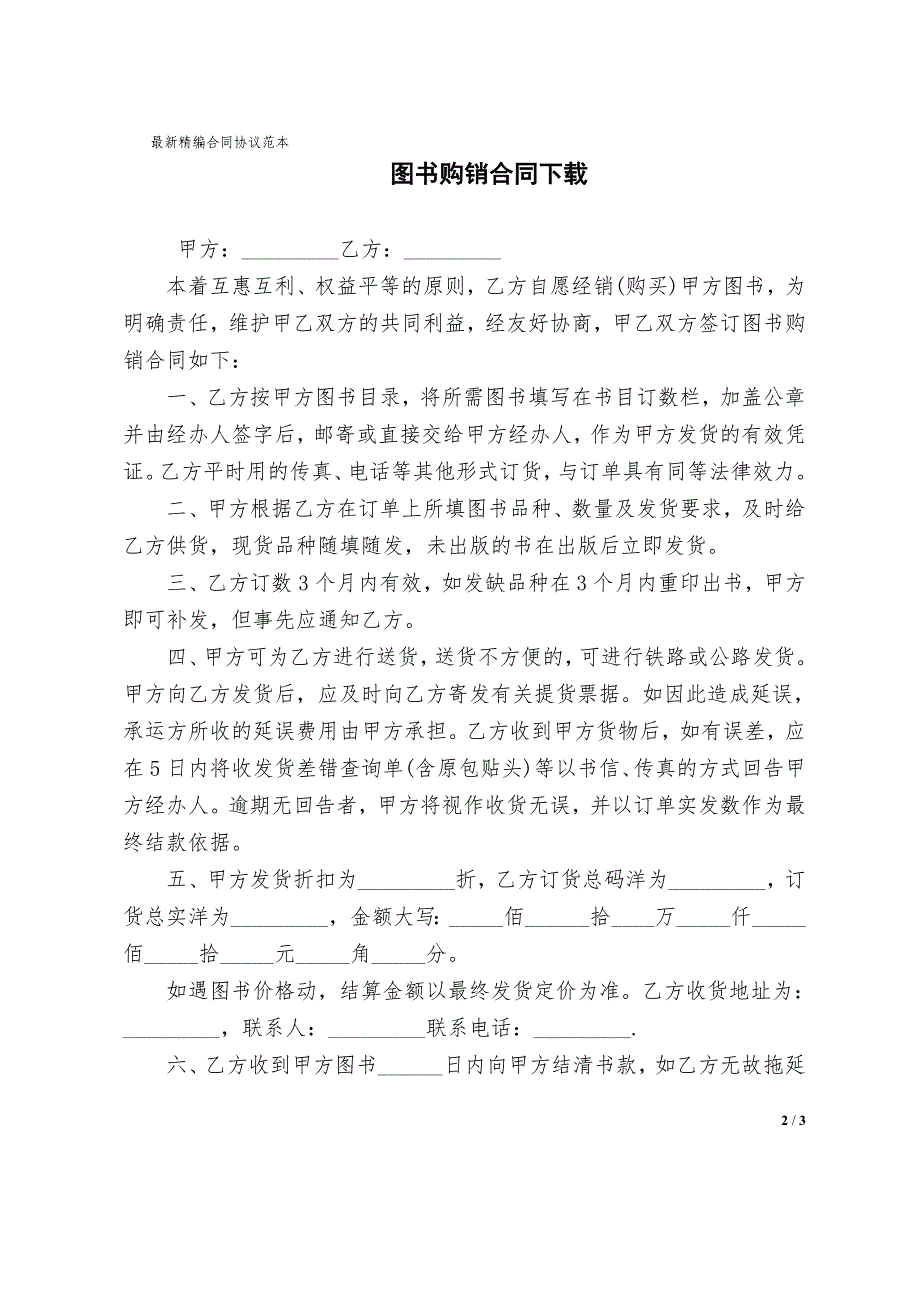 最新精编合同协议范本
图书购销合同下载
甲方：_________乙方：_________
本着互惠互利、权益平等的原则，乙方自愿经销(购买)甲方图书，为
明确责任，维护甲乙双方的共同利益，经友好协商，甲乙双方签订图书购
销合同如下：
一、乙方按甲方图书目录，将所需图书填写在书目订数栏，加盖公章
并由经办人签字后，邮寄或直接交给甲方经办人，作为甲方发货的有效凭
证。乙方平时用的传真、电话等其他形式订货，与订单具有同等法律效力。
二、甲方根据乙方在订单上所填图书品种、数量及发货要求，及时给
乙方供货，现货品种随填随发，未出版的书在出版后立即发货。
三、乙方订数3个月内有效，如发缺品种在3个月内重印出书，甲方
即可补发，但事先应通知乙方。
四、甲方可为乙方进行送货，送货不方便的，可进行铁路或公路发货。
甲方向乙方发货后，应及时向乙方寄发有关提货票据。如因此造成延误，
承运方所收的延误费用由甲方承担。乙方收到甲方货物后，如有误差，应
在5日内将收发货差错查询单(含原包贴头)等以书信、传真的方式回告甲
方经办人。逾期无回告者，甲方将视作收货无误，并以订单实发数作为最
终结款依据。
五、甲方发货折扣为_________折，乙方订货总码洋为_________，订
货总实洋为_________，金额大写：_____佰______拾____万_____仟_____
佰_____拾_____元_____角_____分。
如遇图书价格动，结算金额以最终发货定价为准。乙方收货地址为：
_________，联系人：_________联系电话：_________.
六、乙方收到甲方图书______日内向甲方结清书款，如乙方无故拖延
2 / 3